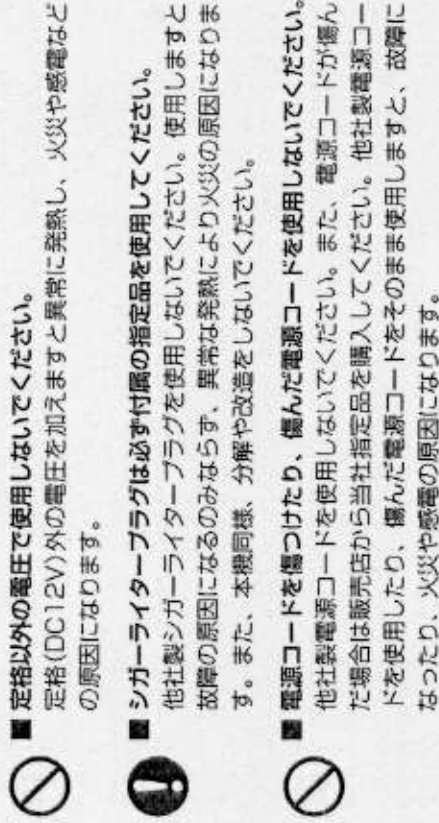 ■ 定格以外の電圧で使用しないでください。
定格(DC12V)外の電圧を加えますと異常に発熱し、火災や感電など
の原因になります。
■ シガーライタープラグは必ず付属の指定品を使用してください。
他社製シガーライタープラグを使用しないでください。使用しますと
故障の原因になるのみならず、異常な発熱により火災の原因になりま
す。また、本機同様、分解や改造をしないでください。
■ 電源コードを傷つけたり、傷んだ電源コードを使用しないでください。
他社製電源コードを使用しないでください。また、電源コードが傷ん
だ場合は販売店から当社指定品を購入してください。他社製電源コー
ドを使用したり、傷んだ電源コードをそのまま使用しますと、故障に
なったり、火災や感電の原因になります。